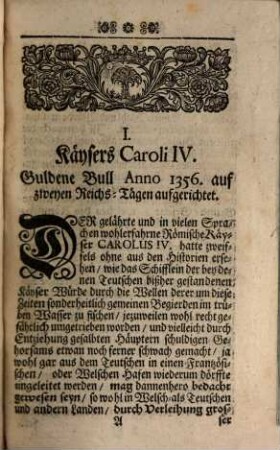 I.
Käysers Caroli IV.
Guldene Bull Anno 1356. auf
zweyen Reichs-Tägen aufgerichtet.
DER gelährte und in vielen Spra-
chen wohlerfahrne Römische Käy-
ser CAROLUS IV. hatte zweif-
fels ohne aus den Historien erse-
hen/ wie das Schifflein der bey de-
nen Teutschen bißher gestandenen
Käyser Würde durch die Wellen derer um diese
Zeiten sonderheitlich gemeinen Begierden im trü-
ben Wasser zu fischen/ jezuweilen wohl recht ge-
fährlich umgetrieben worden/ und vielleicht durch
Entziehung gesalbten Häuptern schuldigen Ge-
horsams etwan noch ferner schwach gemacht/ ja
wohl gar aus dem Teutschen in einen Frantzösi-
schen/ oder Welschen Hafen wiederum dörffte
eingeleitet werden/ mag dannenhero bedacht
gewesen seyn/ so wohl in Welsch-als Teutschen
und andern Landen/ durch Verleihung gros-
A
ser